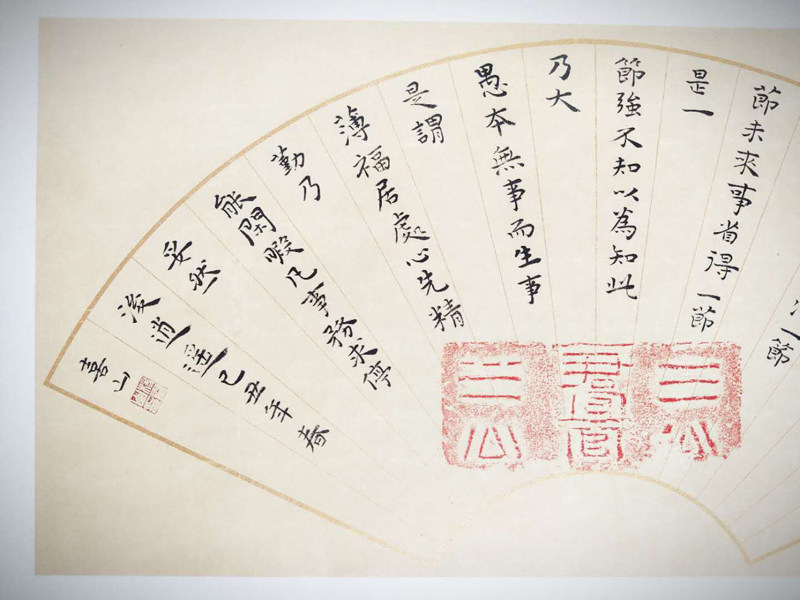 一節
節未來事省得一節
是一
節強不知以為知此
乃大
愚本無事而生事
是謂
薄福居處必先精
勤乃
能閑暇凡事務求停
妥然
後逍遙己丑年春
喜山